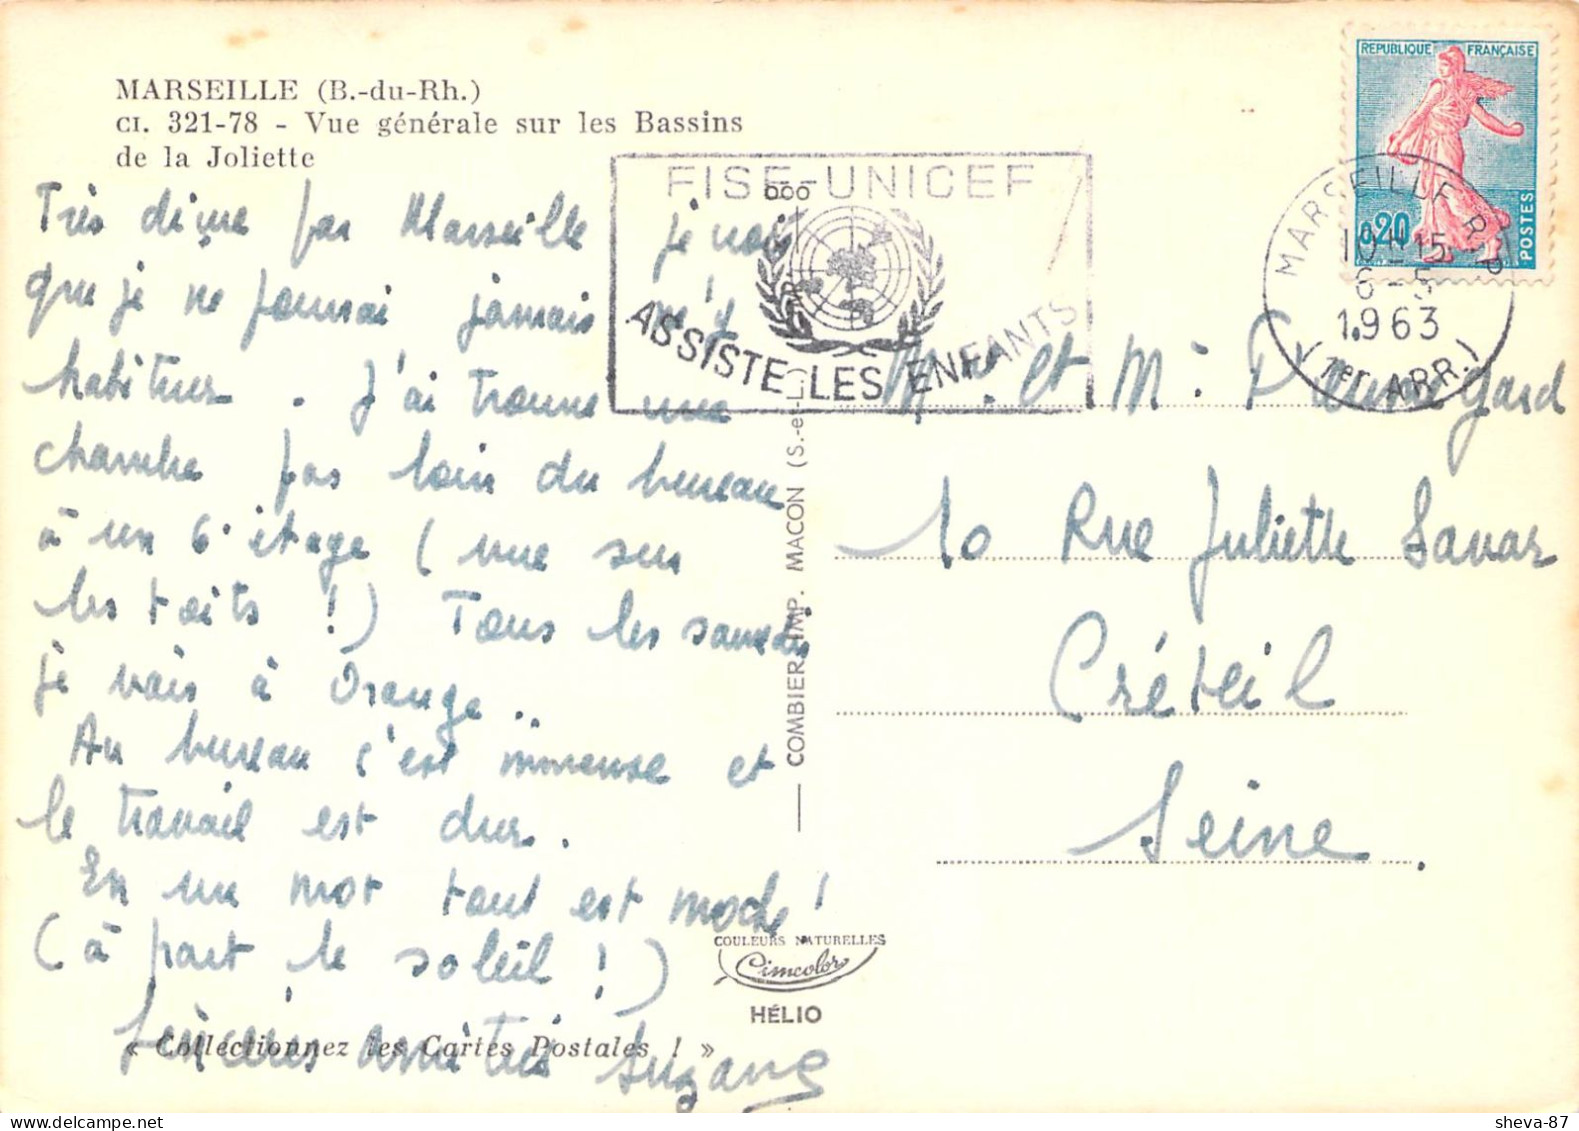 MARSEILLE (B.-du-Rh.)
CI. 321-78 - Vue générale sur les Bassins
de la Joliette
REPUBLIQUE FRANÇAISE
0,20
POSTES
FISE-UNICEF
ASSISTE LES ENFANTS
MARSEILLE R.P
10H15
6-5
1963
(1er ARR.)
Très déçue par Marseille je vois
que je ne pourrai jamais m'y
habituer. J'ai trouvé une
chambre pas loin du bureau
à un 6e étage (vue sur
les toits !) Tous les samedis
je vais à Orange..
Au bureau c'est immense et
le travail est dur.
En un mot tout est moche !
(à part le soleil !)
Sincères amitiés Suzane
« Collectionnez les Cartes Postales ! »
COMBIER IMP. MACON (S.-et-L.)
COULEURS NATURELLES
Cimcolor
HÉLIO
Mr et Me Gard
10 Rue Juliette Savar
Créteil
Seine.
sheva-87